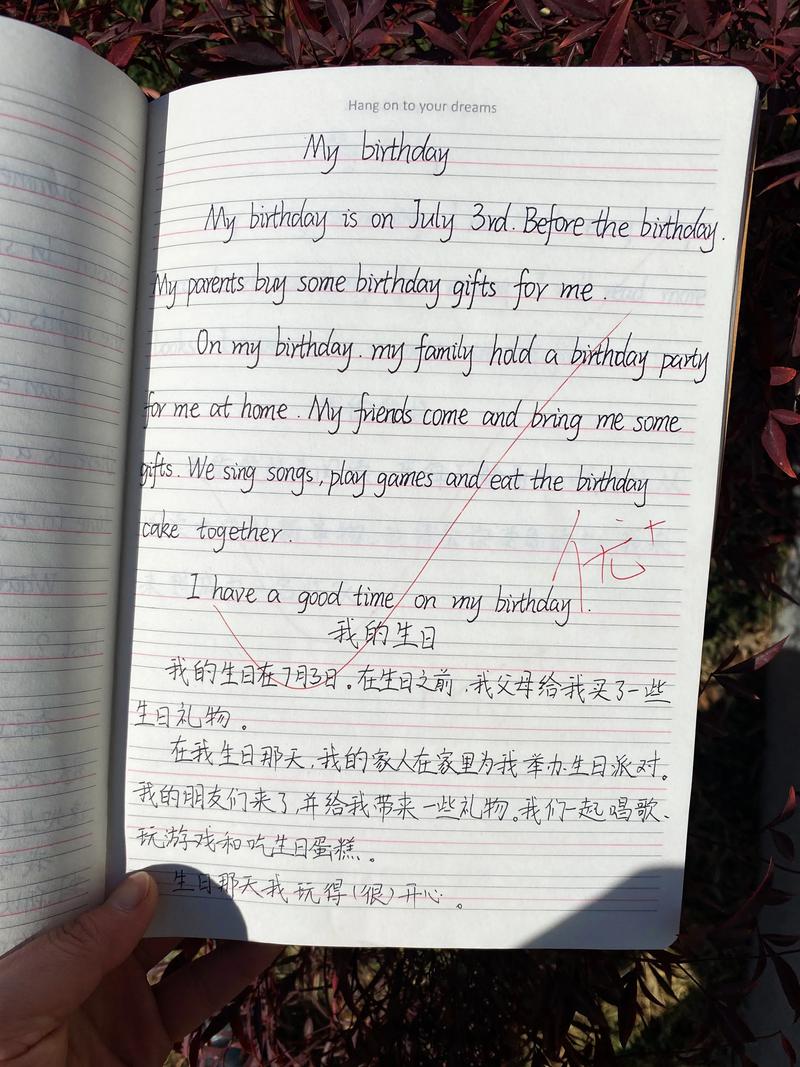 Hang on to your dreams
My birthday
My birthday is on July 3rd. Before the birthday.
My parents buy some birthday gifts for me.
On my birthday. my family hold a birthday party
for me at home. My friends come and bring me some
gifts. We sing songs, play games and eat the birthday
cake together.
优+
I have a good time on my birthday.
我的生日
我的生日在7月3日。在生日之前,我父母给我买了一些
生日礼物。
在我生日那天,我的家人在家里为我举办生日派对。
我的朋友们来了,并给我带来一些礼物。我们一起唱歌、
玩游戏和吃生日蛋糕。
生日那天我玩得(很)开心。